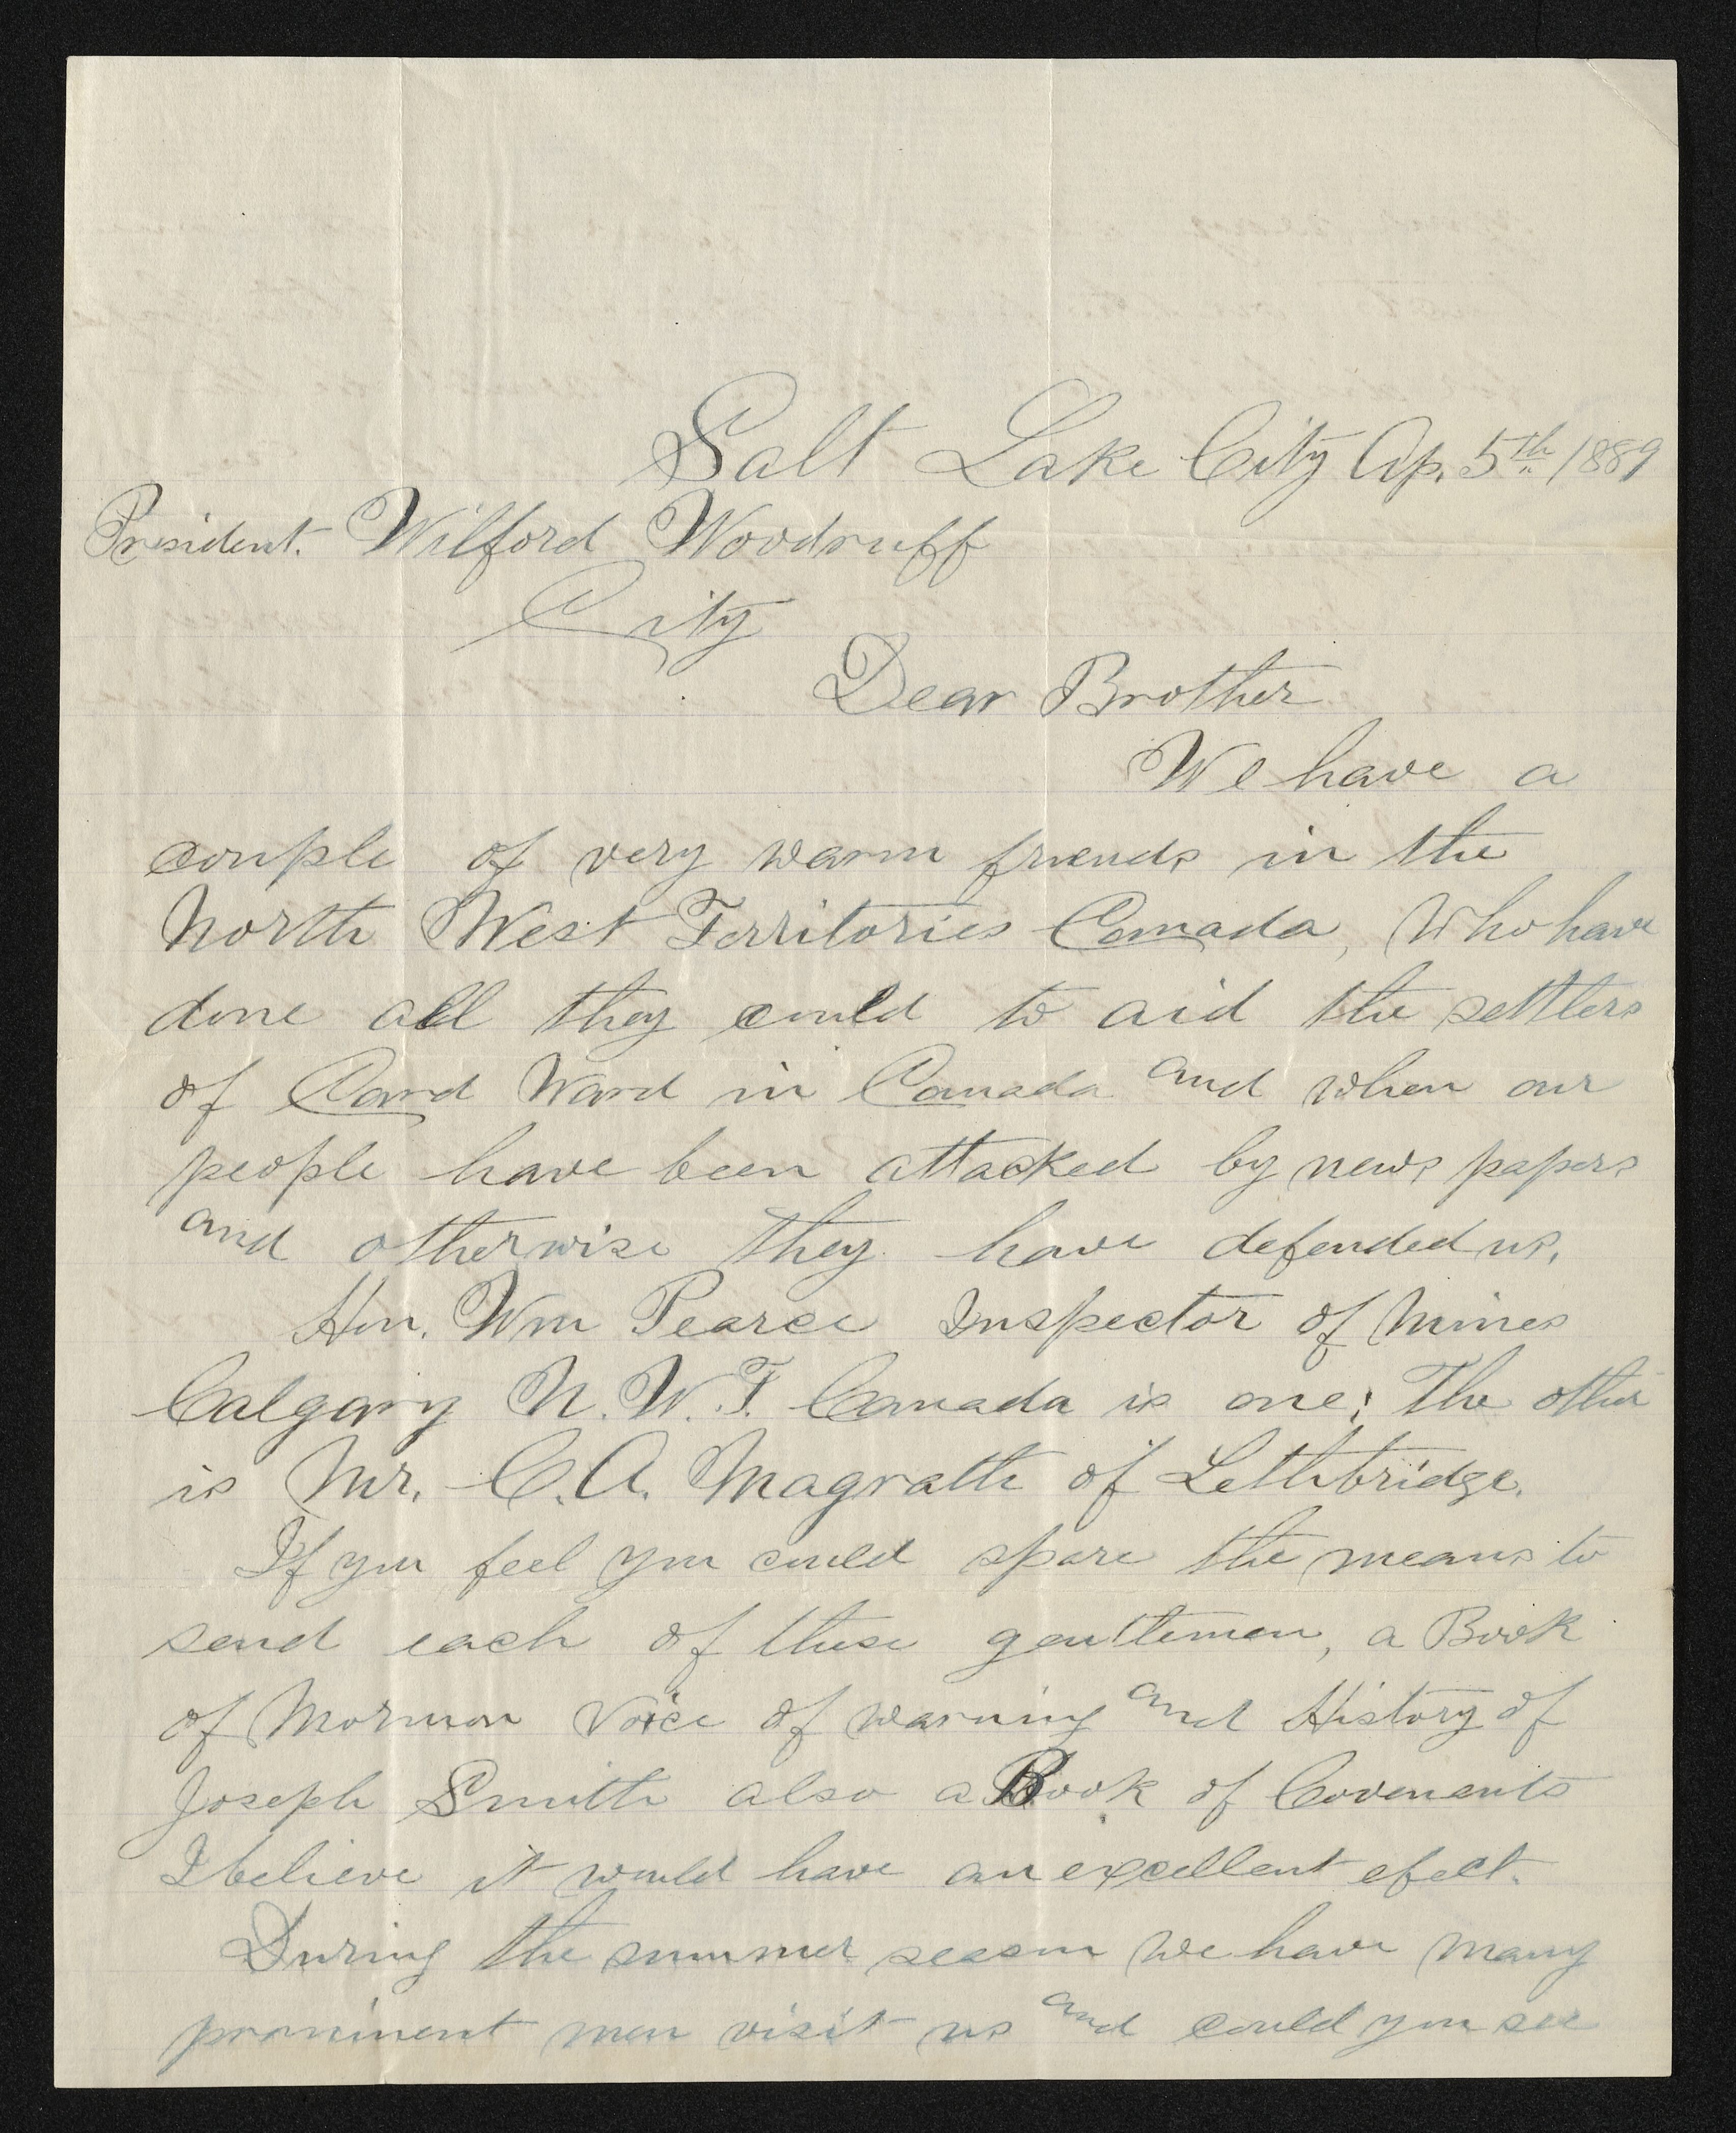 Salt Lake City Ap. 5th 1889
President. Wilford Woodruff
City
Dear Brother
We have a
couple of very warm friends in the
North West Territories Canada, Who have
done all they could to aid the settlers
of Card Ward in Canada and when our
people have been attacked by news papers
and otherwise they have defended us.
Hon. Wm Pearce Inspector of Mines
Calgary N.W.T. Canada is one; The other
is Mr. C.A. Magrath of Lethbridge.
If you feel you could spare the means to
send each of these gentlemen, a Book
of Mormon Voice of warning and History of
Joseph Smith also a Book of Covenants
I believe it would have an excellent efect.
During the summer season we have many
prominent men visit us and could you see